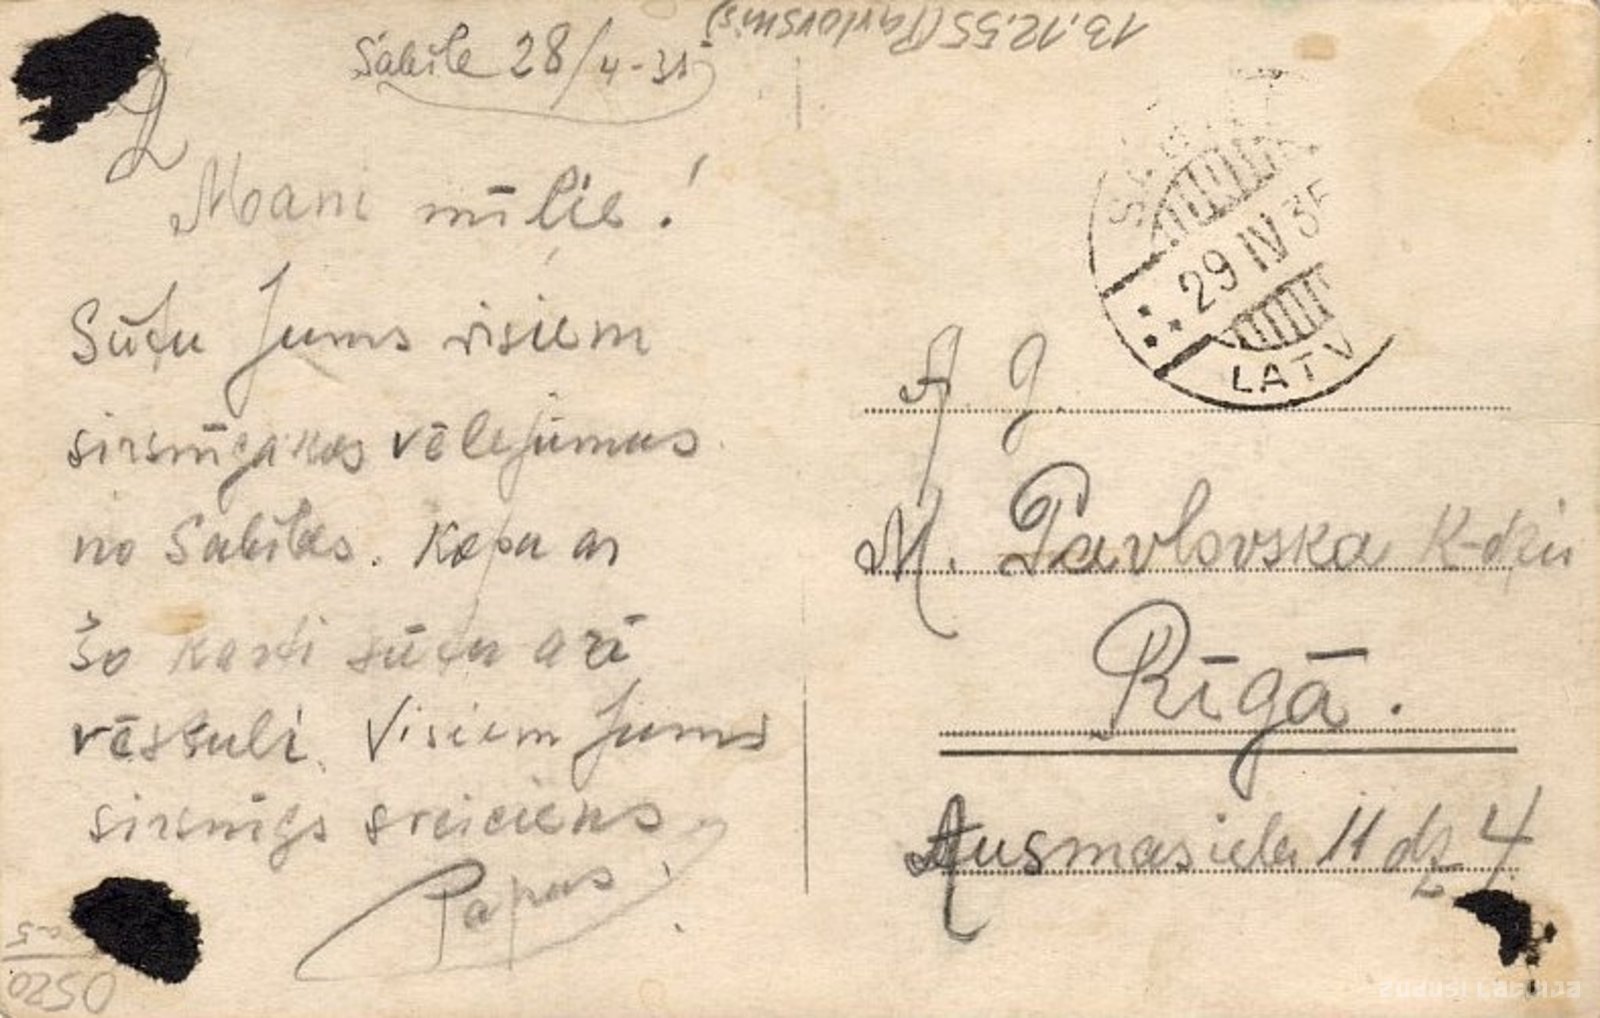 Sabile 28/4-35
Mani mīļie!
Sūtu Jums visiem
sirsnīgakos vēlejumus
no Sabiles. Kopa ar
šo karti sūtu arī
vēstuli. Visiem Jums
sirsnīgs sveiciens
Papus
13.12.55 (Pavlovskis)
29 IV 35
LATV
A. g.
M. Pavlovska K-dzei
Rīgā.
Ausmas iela 11 dz 4.
0520
zudusi Latvija